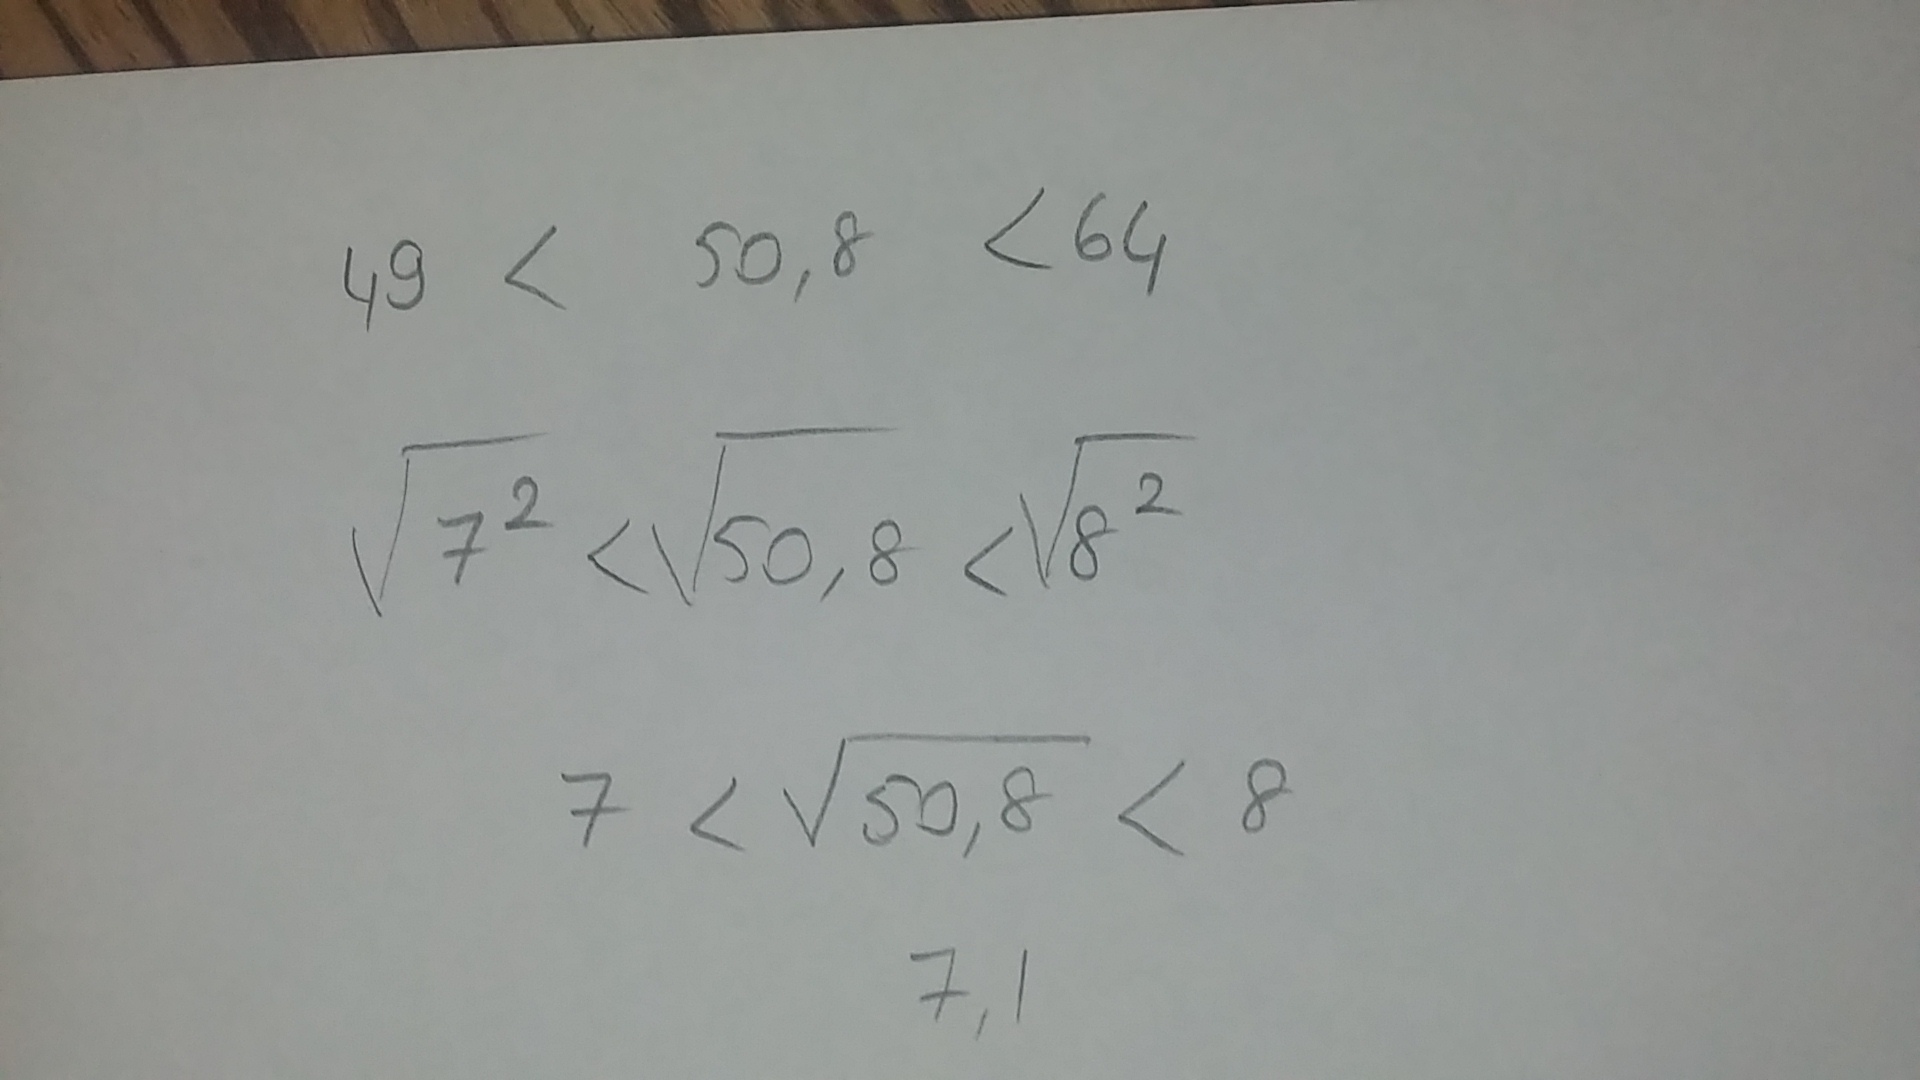 49 < 50,8 < 64
√7² < √50,8 < √8²
7 < √50,8 < 8
7,1